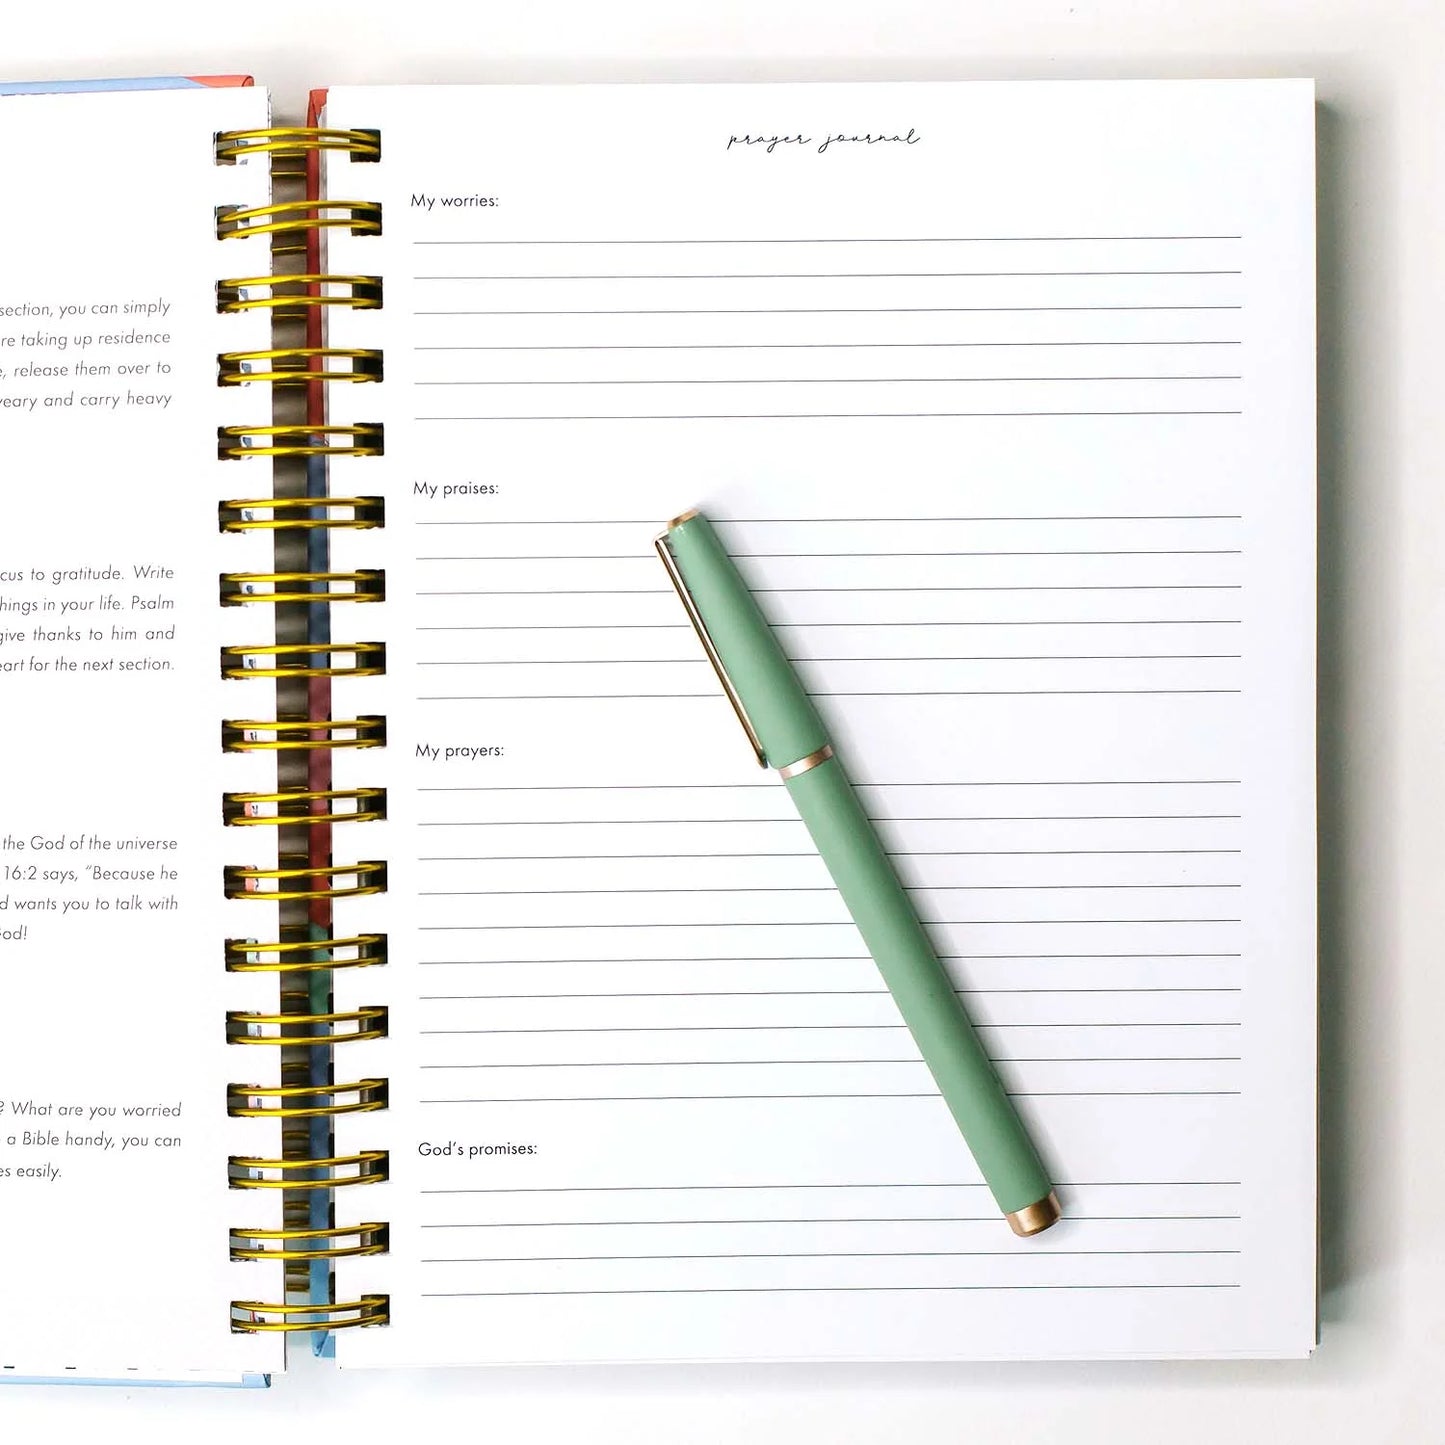 section, you can simply
taking up residence
release them over to
and carry heavy
to gratitude. Write
in your life. Psalm
give thanks to him and
for the next section.
the God of the universe
16:2 says, “Because he
wants you to talk with
God!
? What are you worried
a Bible handy, you can
easily.
prayer journal
My worries:
My praises:
My prayers:
God’s promises: